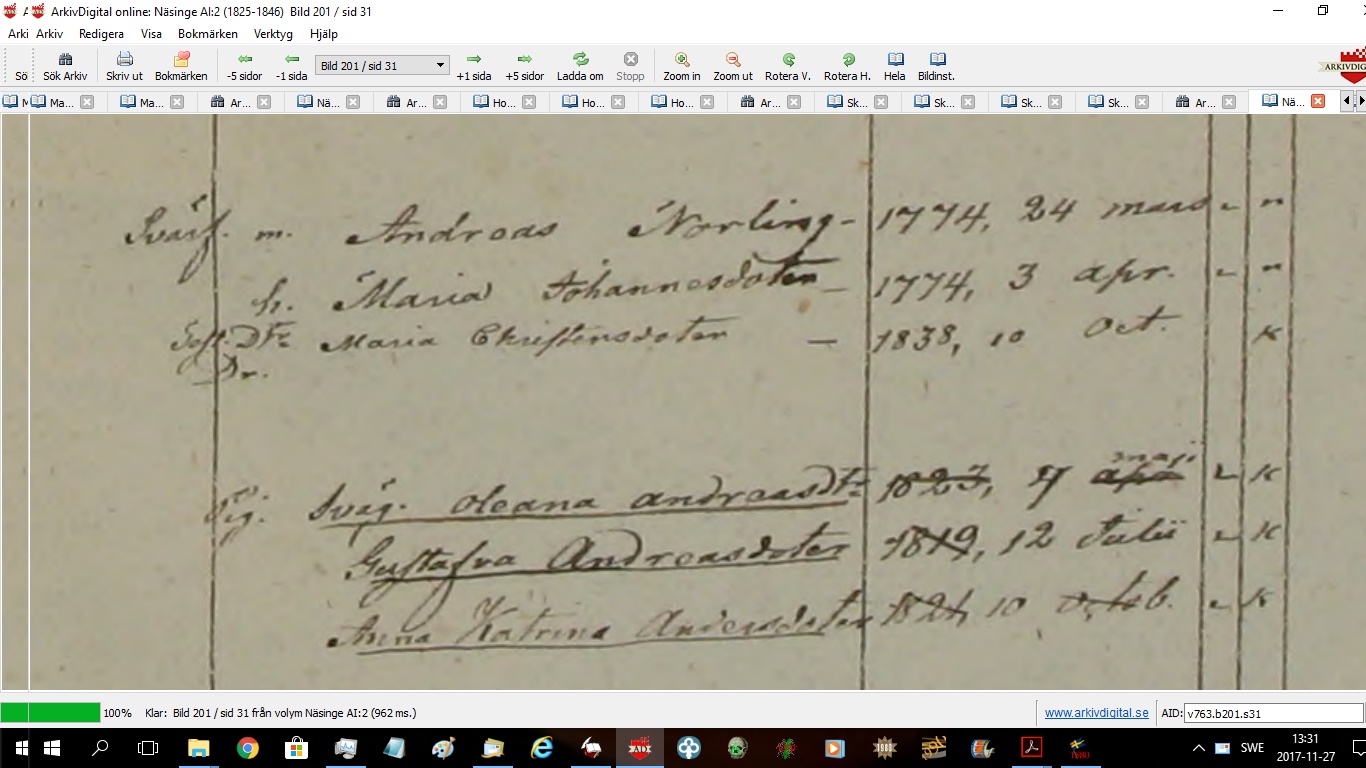 ArkivDigital online: Näsinge AI:2 (1825-1846) Bild 201 / sid 31
Arki Arkiv Redigera Visa Bokmärken Verktyg Hjälp
Sö Sök Arkiv Skriv ut Bokmärken -5 sidor -1 sida Bild 201 / sid 31 +1 sida +5 sidor Ladda om Stopp Zoom in Zoom ut Rotera V. Rotera H. Hela Bildinst. ARKIVDIG
Ma... Ma... Ar... Nä... Ar... Ho... Ho... Ho... Ar... Sk... Sk... Sk... Sk... Ar... Nä...
m. Andreas Norling - 1774, 24 mars
h. Maria Johannesdoter - 1774, 3 apr.
Maria Christensdoter - 1838, 10 Oct. K
Dr.
maji
Pig. Oleana andreasdtr 1823, apr K
Gustafva Andreasdoter 1819, 12 Julii K
Anna Katrina Andersdoter 1821, 10 Octob. K
100% Klar: Bild 201 / sid 31 från volym Näsinge AI:2 (962 ms.) www.arkivdigital.se AID: v763.b201.s31
SWE 13:31
2017-11-27